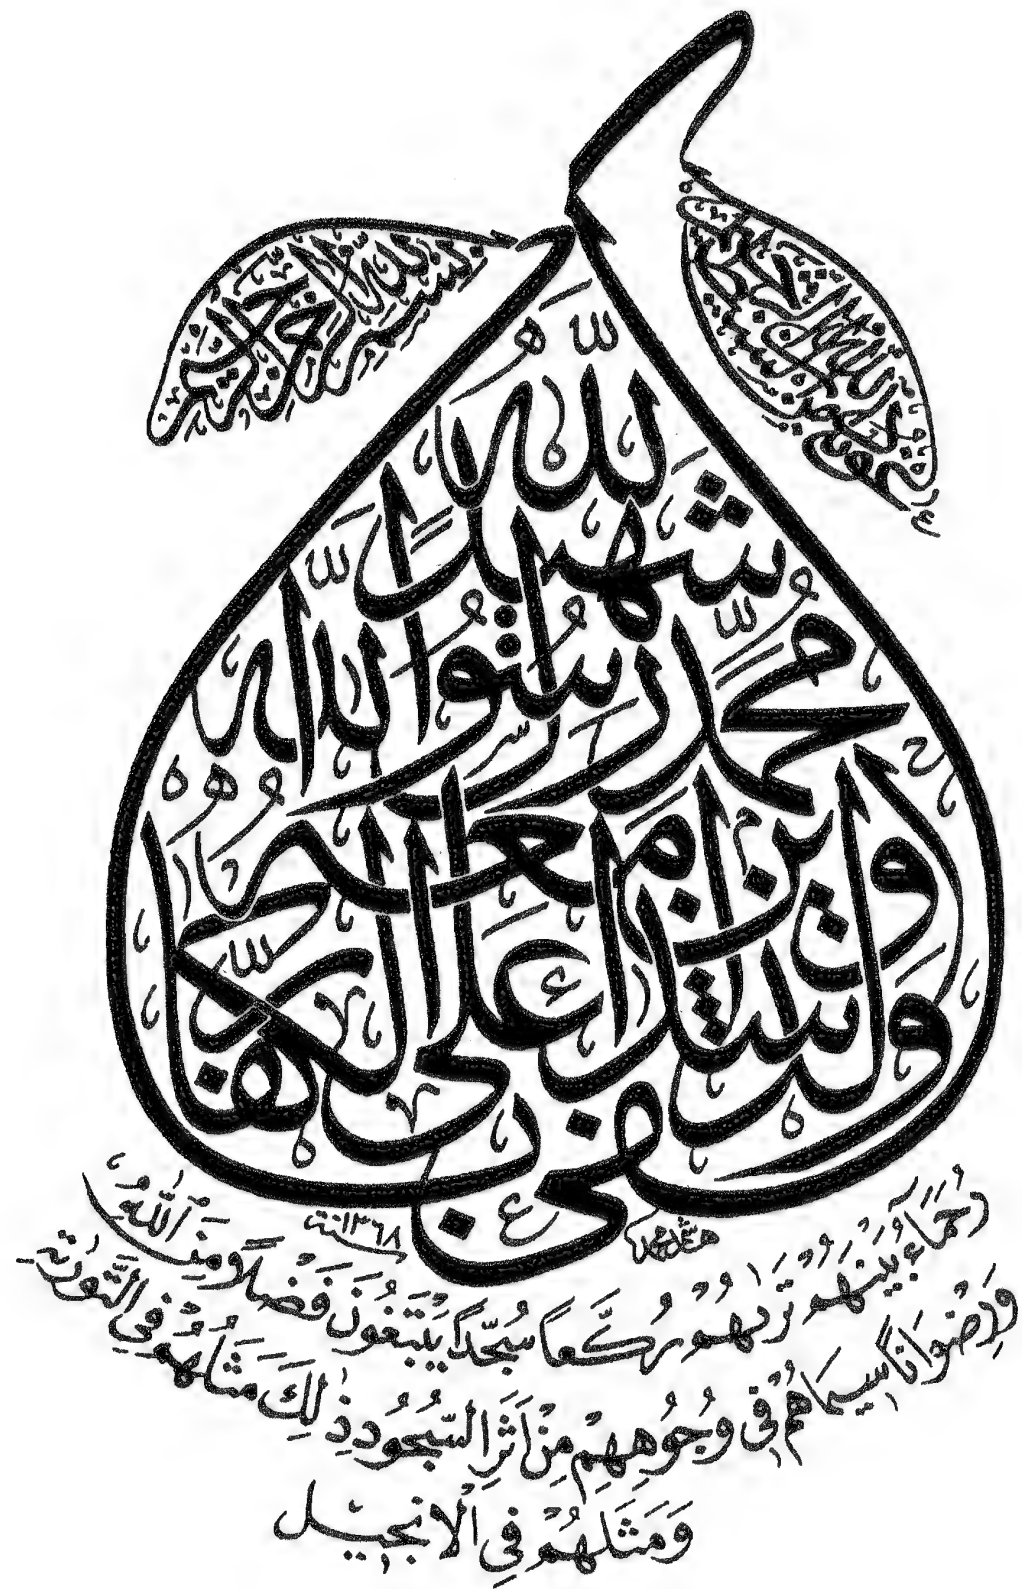 أعوذ بالله من الشيطان الرجيم
بسم الله الرحمن الرحيم
وكفى بالله شهيدًا
محمد رسول الله
والذين معه
أشداء على الكفار
هاشم محمد
سنة ١٣٦٨
رُحَمَاءُ بَيْنَهُمْ تَرٰىهُمْ رُكَّعاً سُجَّداً يَبْتَغُونَ فَضْلاً مِنَ اللّٰهِ
وَرِضْوَاناً سِيمَاهُمْ فِي وُجُوهِهِمْ مِنْ اَثَرِ السُّجُودِ ذٰلِكَ مَثَلُهُمْ فِي التَّوْرٰيةِ
وَمَثَلُهُمْ فِي الْاِنْجِيلِ